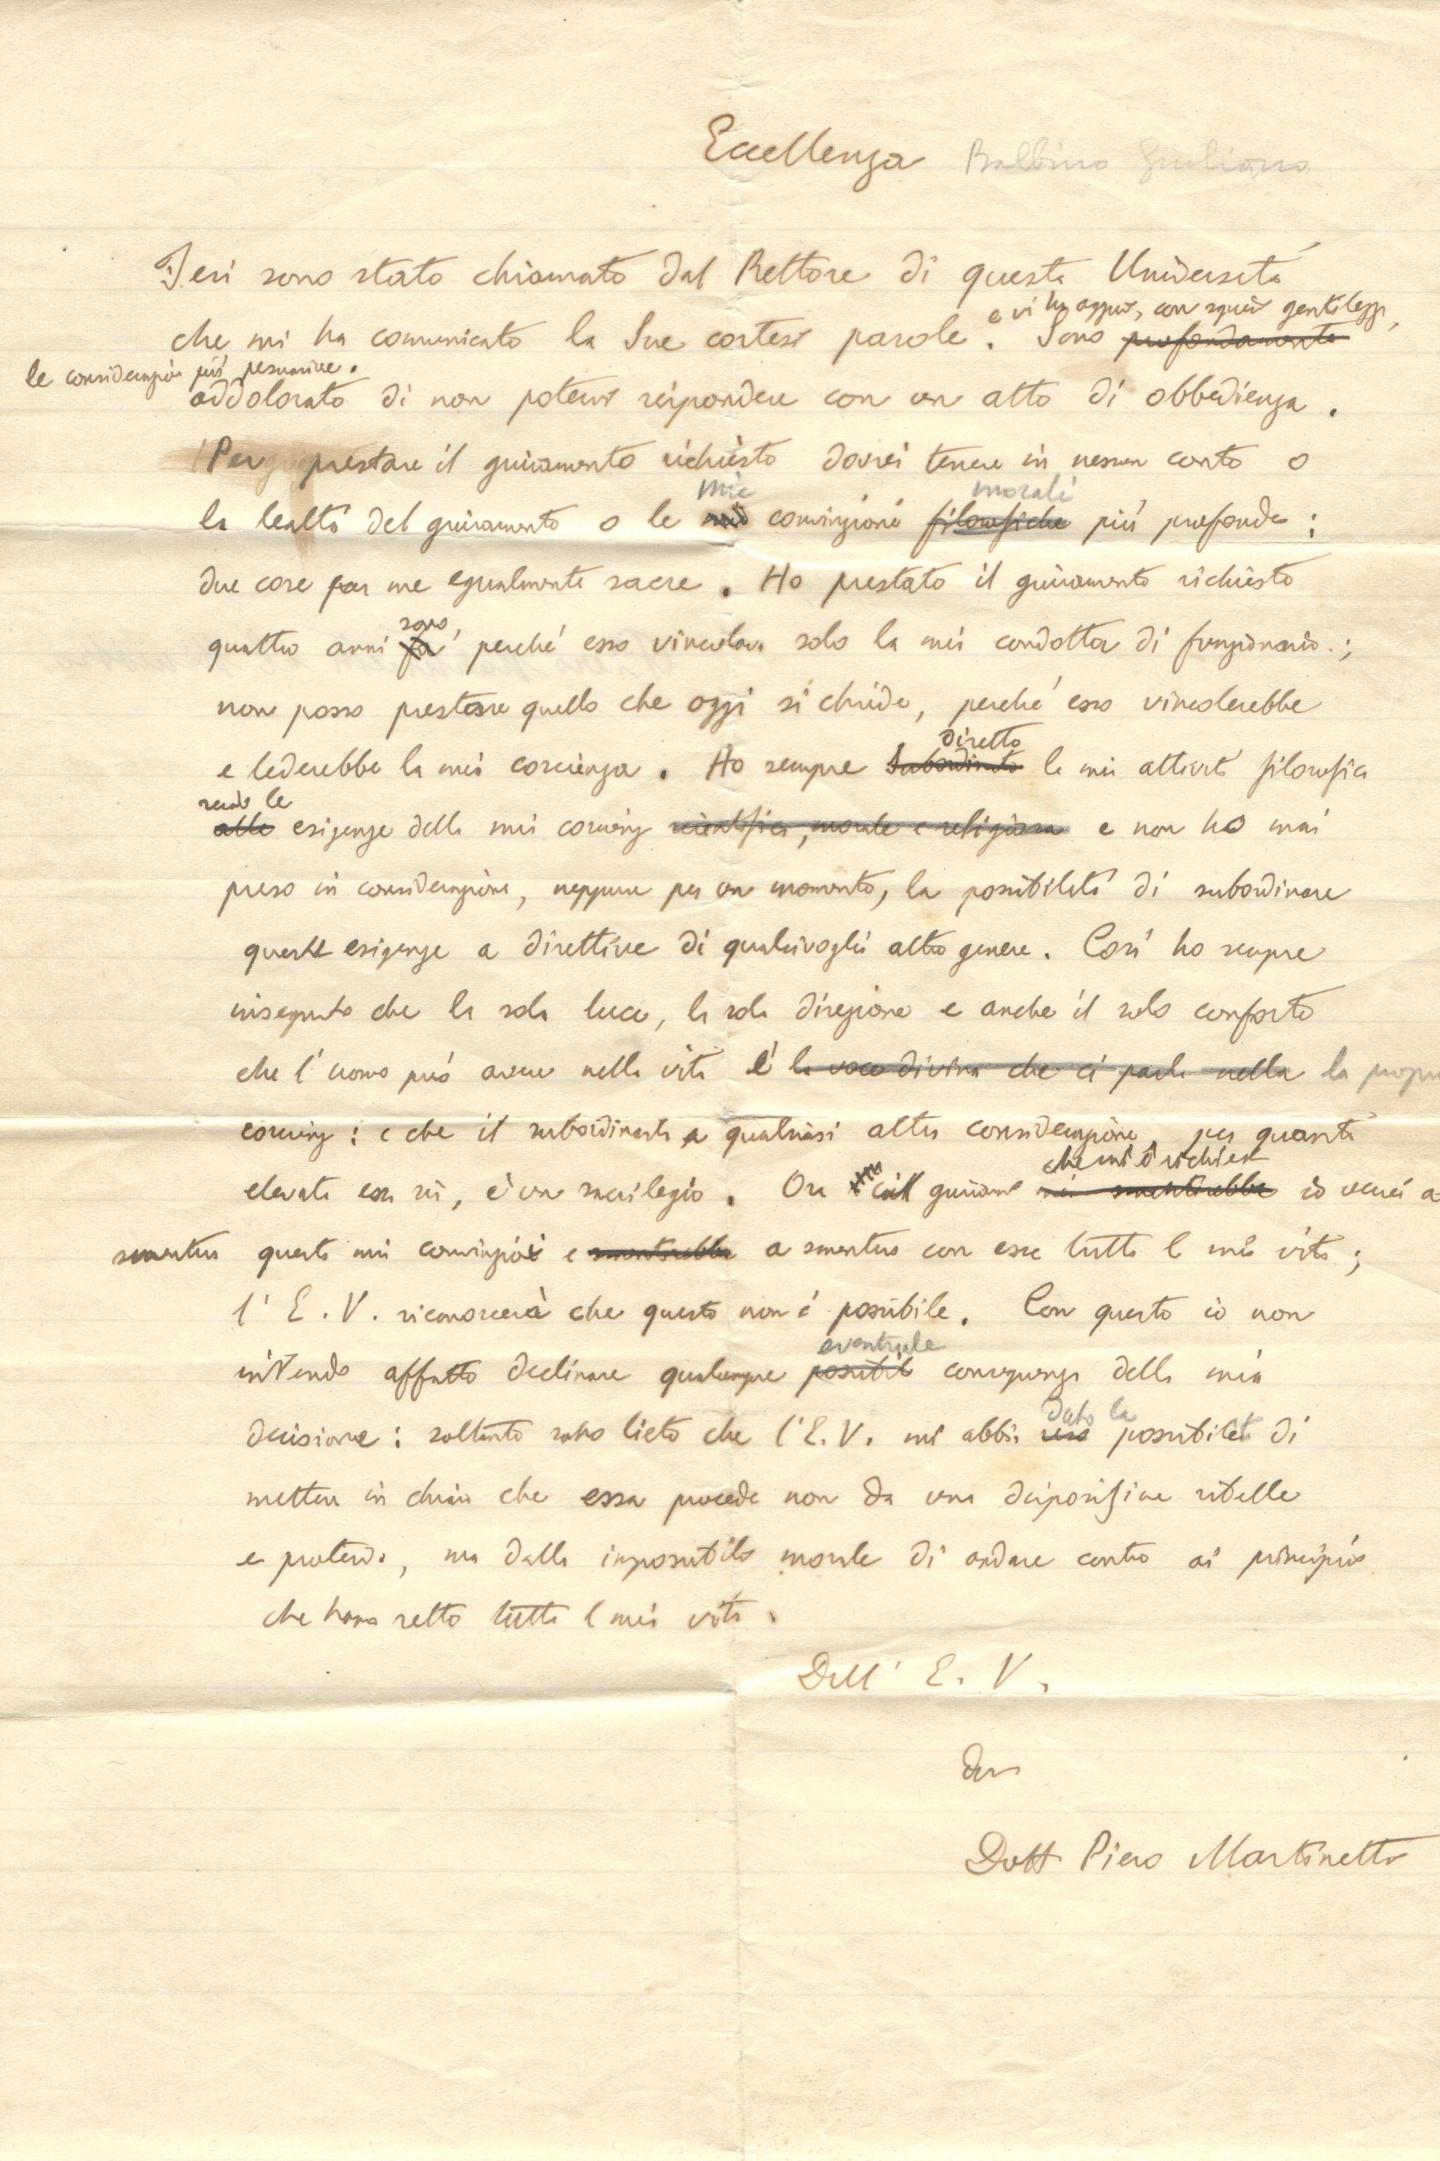 Eccellenza Balbino Giuliano
Ieri sono stato chiamato dal Rettore di questa Università
e vi ha aggiunto, con squisita gentilezza,
che mi ha comunicato le Sue cortesi parole. Sono profondamente
le considerazioni più persuasive.
addolorato di non potervi rispondere con un atto di obbedienza.
Per prestare il giuramento richiesto dovrei tenere in nessun conto o
mie morali
la lealtà del giuramento o le convinzioni filosofiche più profonde:
due cose per me egualmente sacre. Ho prestato il giuramento richiesto
sono
quattro anni fa perché esso vincolava solo la mia condotta di funzionario;
non posso prestare quello che oggi si chiede, perché esso vincolerebbe
diretto
e lederebbe la mia coscienza. Ho sempre subordinato la mia attività filosofica
secondo le
alle esigenze della mia coscienza scientifica, morale e religiosa e non ho mai
preso in considerazione, neppure per un momento, la possibilità di subordinare
queste esigenze a direttive di qualsivoglia altro genere. Così ho sempre
insegnato che la sola luce, la sola direzione e anche il solo conforto
che l'uomo può avere nella vita è la voce divina che ci parla nella la propria
coscienza: e che il subordinarla a qualsiasi altra considerazione, per quanto
che mi è richiesto
elevata essa sia, è un sacrilegio. Ora col giuramento smentirebbe io verrei a
smentire queste mie convinzioni e smentirebbe a smentire con esse tutta la mia vita;
l'E.V. riconoscerà che questo non è possibile. Con questo io non
eventuale
intendo affatto declinare qualunque possibile conseguenza della mia
dato la
decisione: soltanto sono lieto che l'E.V. mi abbia reso possibilità di
mettere in chiaro che essa procede non da una disposizione ribelle
e proterva, ma dalla impossibilità morale di andare contro ai principii
che hanno retto tutta la mia vita.
Dell'E.V.
Dev
Dott Piero Martinetti